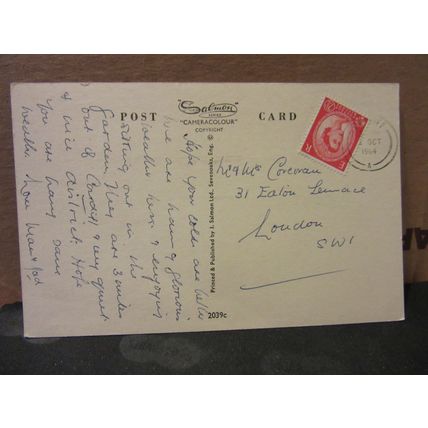 Salmon
SERIES
"CAMERACOLOUR"
COPYRIGHT
POST CARD
Hope your colds are better
We are having glorious
weather here & enjoying
sitting out in the
Garden. They are 3 miles
out of Cardiff & very quiet
& nice district. Hope
you are having same
weather. love
Printed & Published by J. Salmon Ltd., Sevenoaks, Eng.
2039c
OCT
1964
Mr & Mrs Corcoran
31 Eaton Terrace
London
SW1